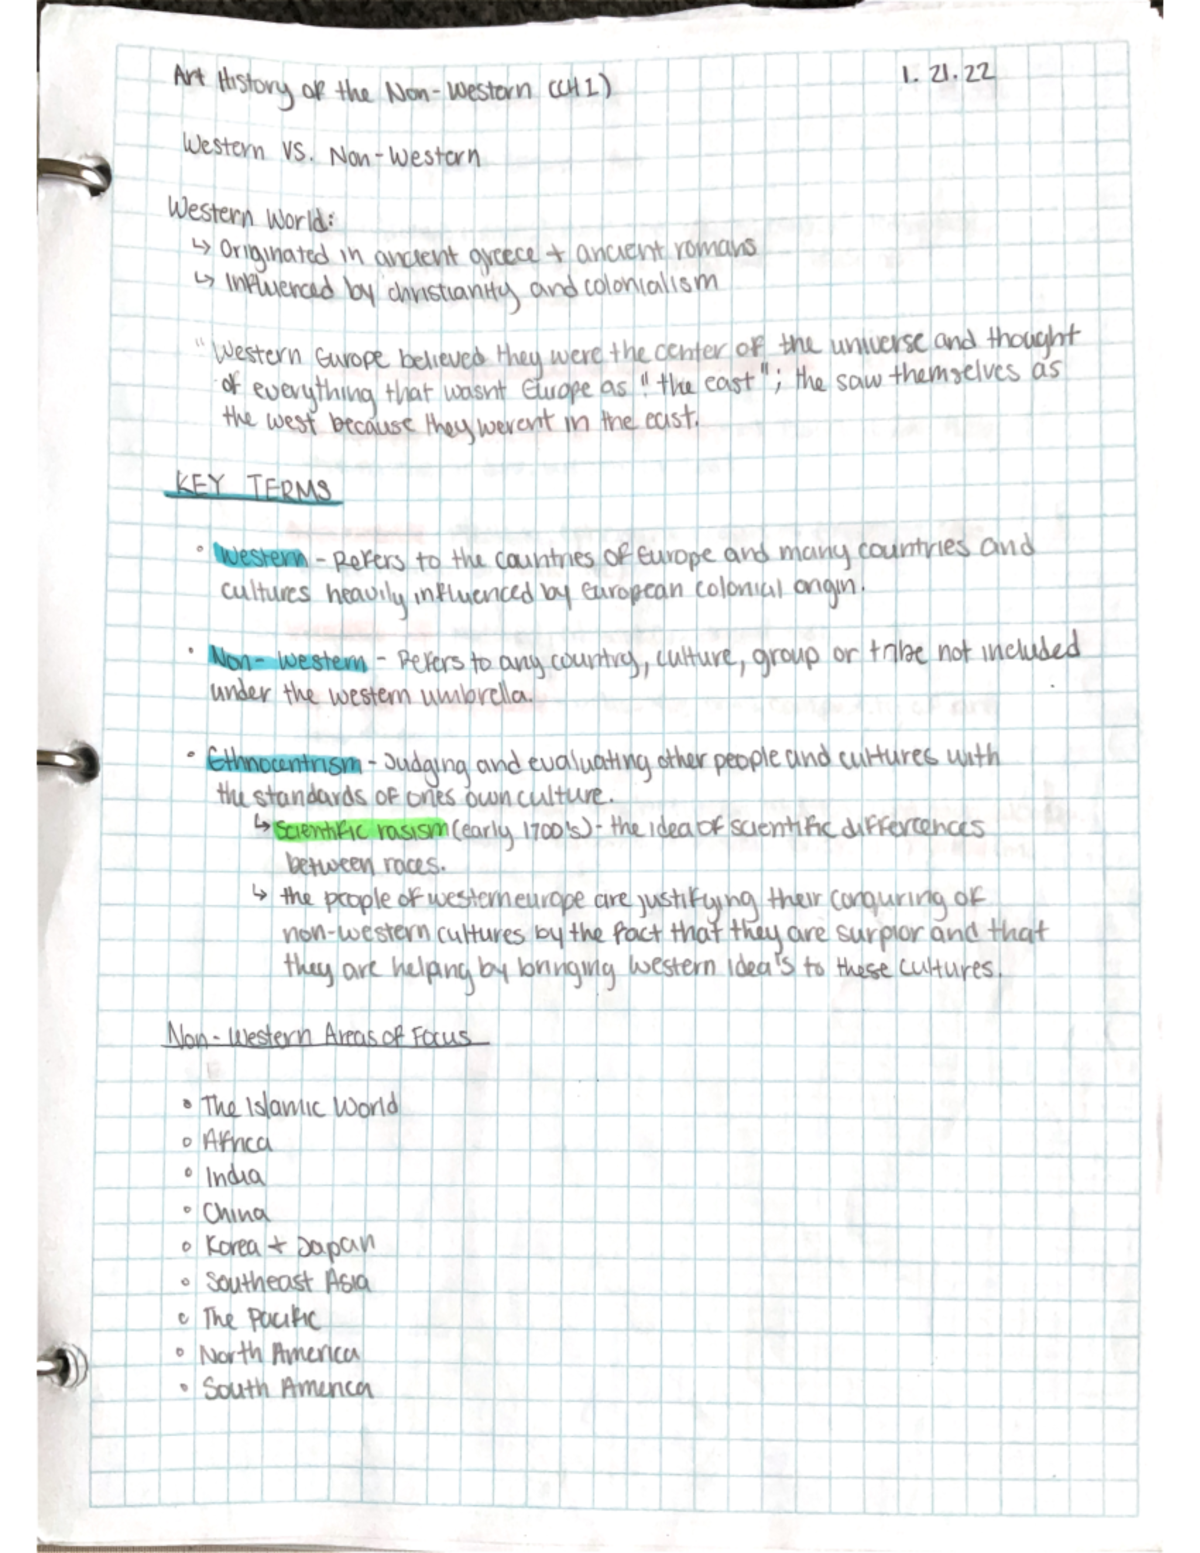 Art History of the Non-Western (CH 1)
1. 21. 22
Western VS. Non-Western
Western World:
↳ Originated in ancient greece + ancient romans
↳ Influenced by christianity and colonialism
"Western Europe believed they were the center of the universe and thought
of everything that wasnt Europe as "the east"; the saw themselves as
the west because they werent in the east.
KEY TERMS
• Western - Refers to the countries of Europe and many countries and
cultures heavily influenced by European colonial origin.
• Non-Western - Refers to any country, culture, group or tribe not included
under the western umbrella.
• Ethnocentrism - Judging and evaluating other people and cultures with
the standards of ones own culture.
↳ Scientific rasism (early 1700's) - the idea of scientific differences
between races.
↳ the people of western europe are justifying their conquring of
non-western cultures by the fact that they are surpior and that
they are helping by bringing western idea's to these cultures.
Non-Western Areas of Focus
• The Islamic World
• Africa
• India
• China
• Korea + Japan
• Southeast Asia
• The Pacific
• North America
• South America